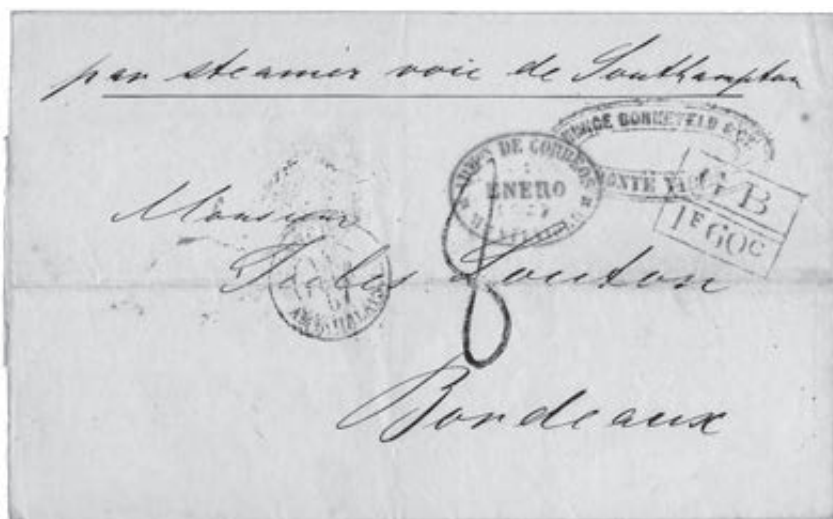 par steamer voie de Southampton
BONNEFELD & Cie
MONTE VI
ADMON DE CORREOS
ENERO
MONTEVIDEO
GB
1F60c
Monsieur
Jules Louton
8
AMBULANT
Bordeaux